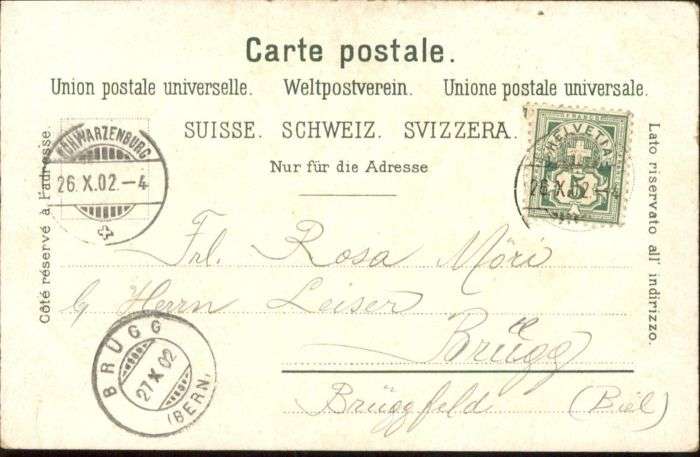 Carte postale.
Union postale universelle. Weltpostverein. Unione postale universale.
SUISSE. SCHWEIZ. SVIZZERA.
Nur für die Adresse
Côté réservé à l'adresse.
Lato riservato all' indirizzo.
SCHWARZENBURG
26.X.02.–4
FRANCO
HELVETIA
5
26.X.02.–4
Frl. Rosa Möri
b/ Herrn Leiser
Brügg
Brüggfelde (Biel)
BRÜGG
27 X 02
(BERN)